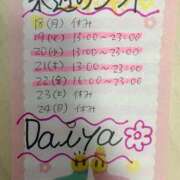 来週のシフト
18(月)休み
19(火)13:00~23:00
20(水)13:00~23:00
21(木)13:00~23:00
22(金)16:00~23:00
23(土)休み
24(日)休み
Daiya